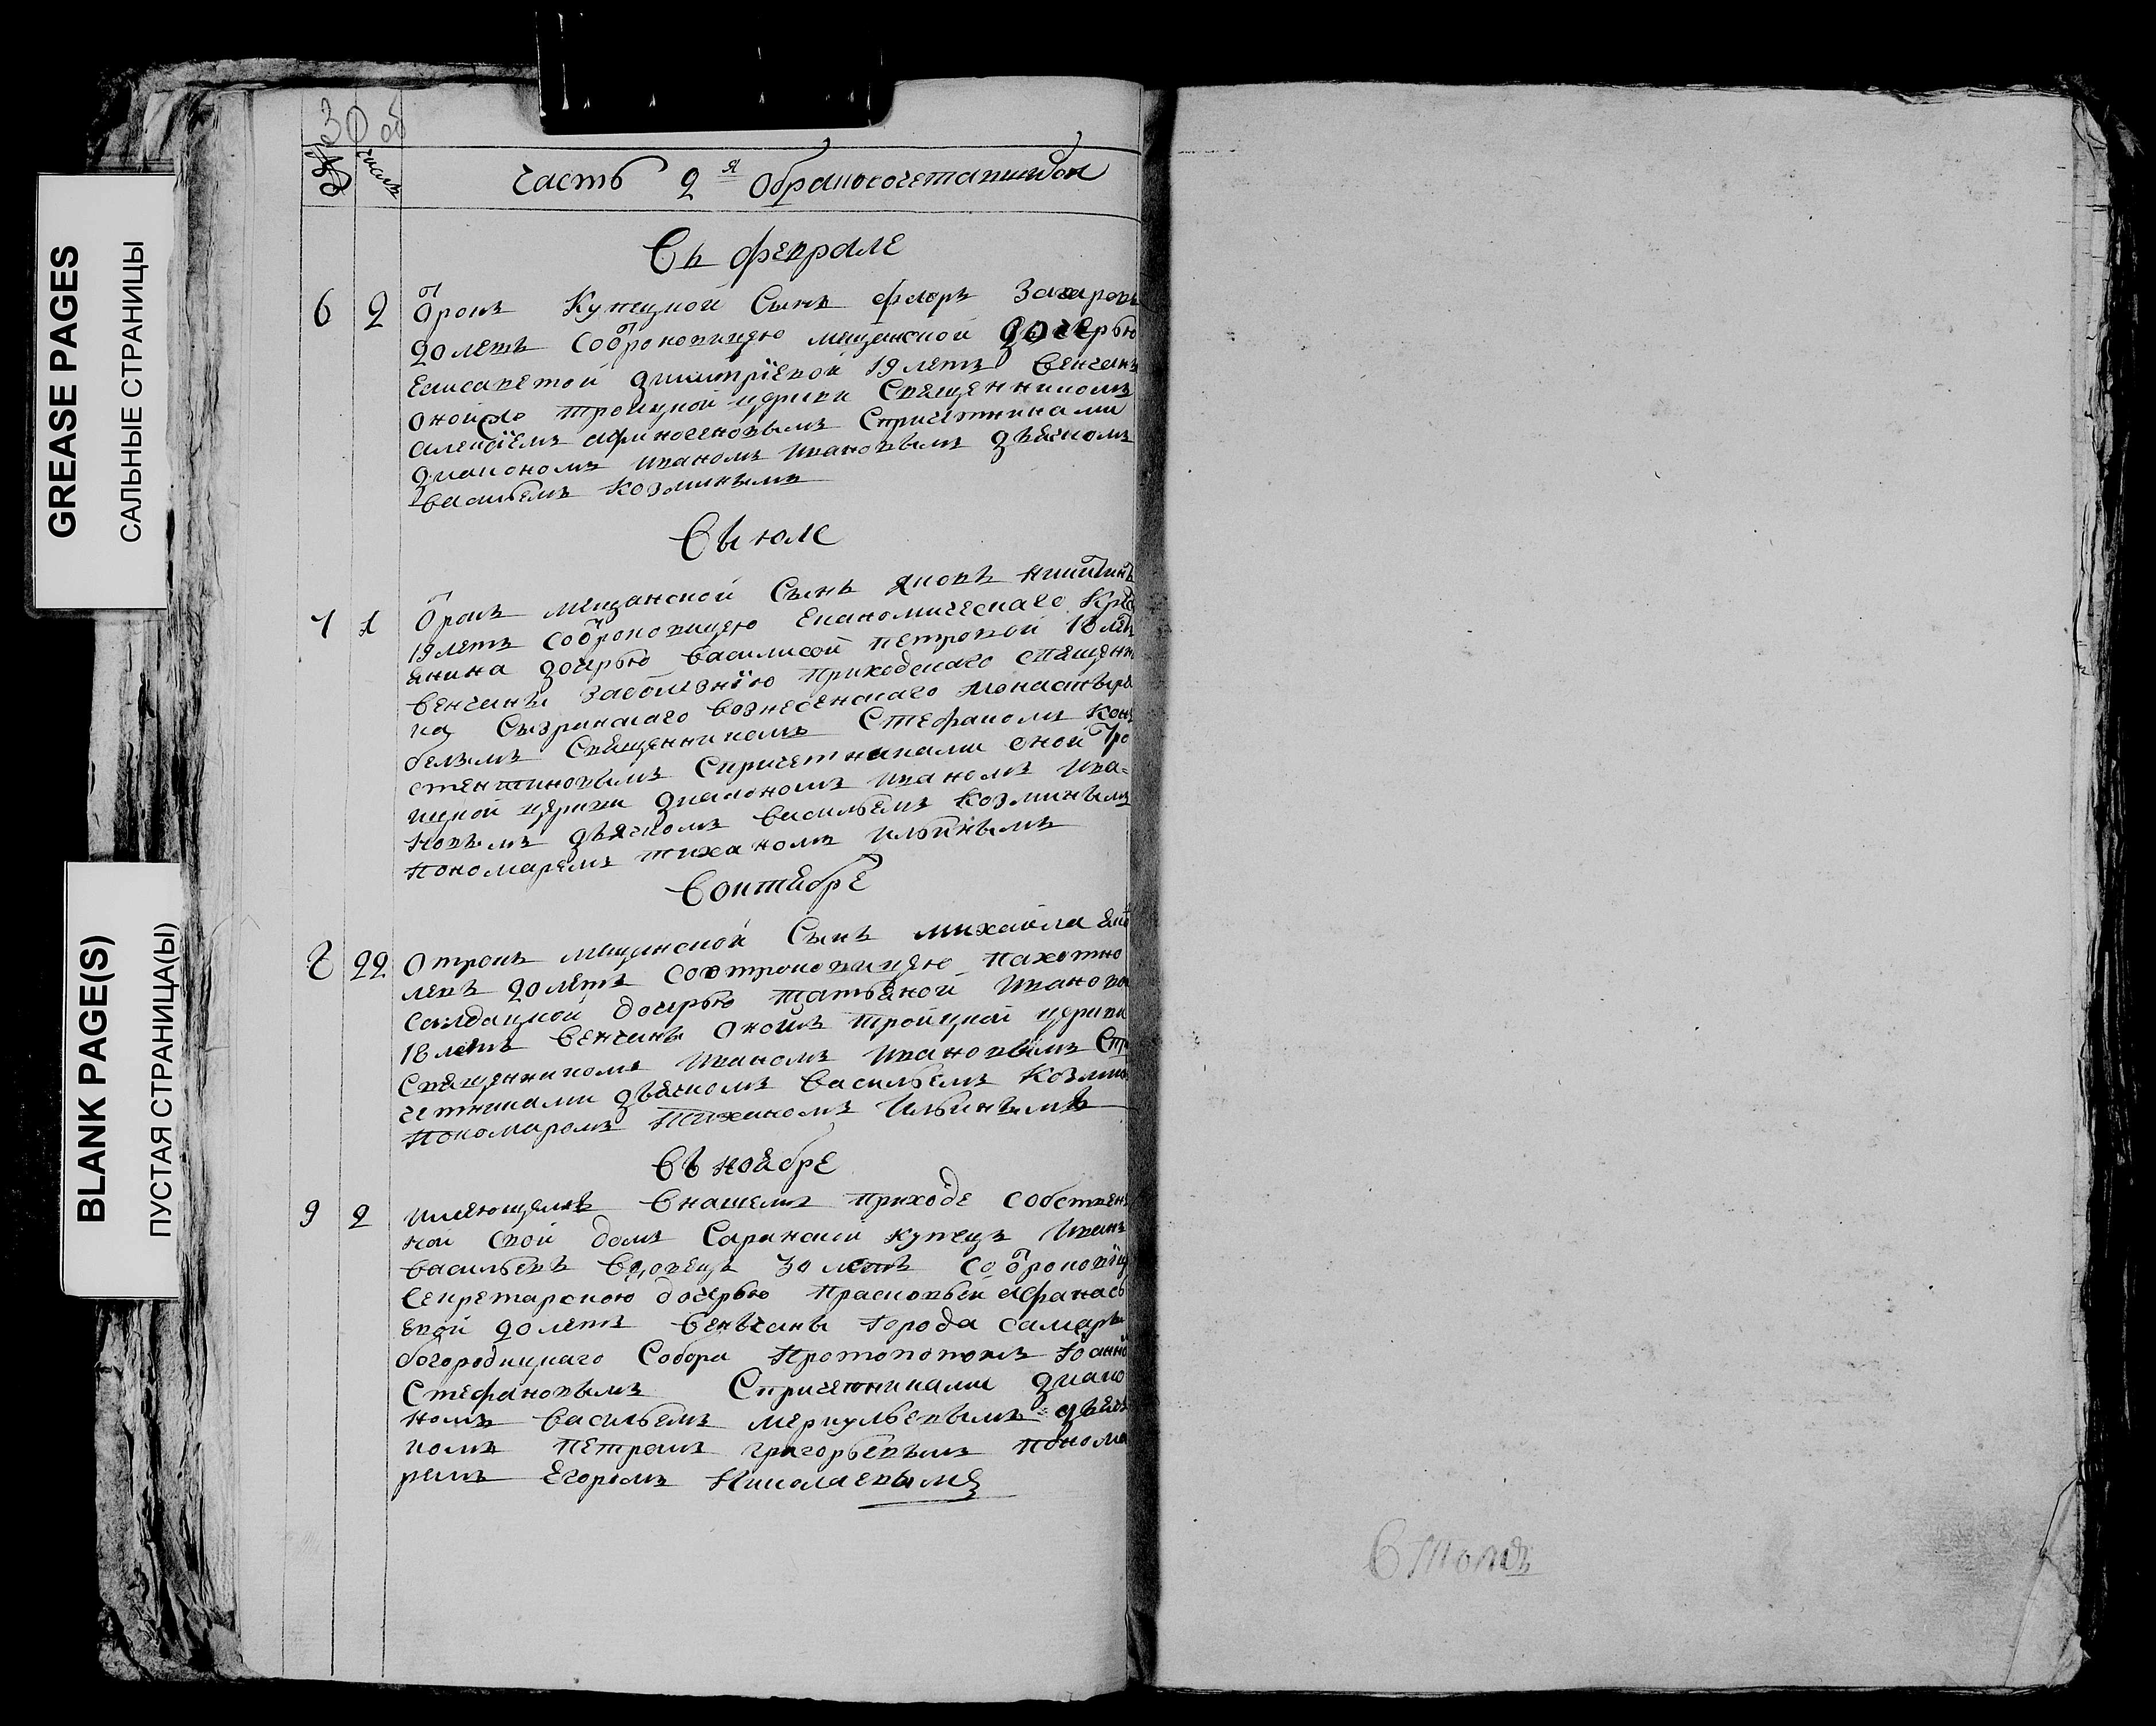 GREASE PAGES
САЛЬНЫЕ СТРАНИЦЫ
BLANK PAGE(S)
ПУСТАЯ СТРАНИЦА(Ы)
30 об
часть 2я обракосочетавшихся
Въ феврале
6 2 Отрокъ Купецкой Сынъ флоръ Захаровъ
20 летъ Соотроковицею мещанской дочерью
Елисаветой димитрïевой 19 летъ Венчанъ
оной Троицкой церкви Священникомъ
алексïемъ афиногеновымъ Спричетниками
диакономъ иваномъ ивановымъ дьячкомъ
Васильемъ Козминымъ
Въ июле
7 1 Отрокъ мещанской Сынъ яковъ никитинъ
19 летъ Соотроковицею Економическаго Кресть
янина дочерью Василисой петровой 18 летъ
Венчаны Заболезнïю приходскаго священни
ка Сызранскаго Вознесенскаго монастыря
белымъ Священникомъ Стефаномъ Кон
стентиновымъ Спричетниками оной Тро
ицкой церкви диакономъ иваномъ ива=
новымъ дьячкомъ Васильемъ Козминымъ
пономаремъ тиханомъ ильинымъ
Воктябре
8 22 Отрокъ мещанской Сынъ михайла яков
левъ 20 летъ Соотроковицею пахотно
солдацкой дочерью татьяной ивановой
18 летъ Венчаны Троицкой церкви
Священникомъ иваномъ ивановымъ Спри
четниками дьячкомъ Васильемъ Козмины
пономаромъ тиханомъ ильинымъ
Въ ноябре
9 2 имеющей Внашемъ приходе собствен
ной свой домъ Саранский купецъ иванъ
Васильевъ Вдовецъ 30 летъ Соотроковиц
Секретарскою дочерью прасковьей афанась
евой 20 летъ Веньчаны города самары
богородицкаго Собора протопопомъ Iоанно
Стефановымъ Спричетниками диако
номъ Васильемъ меркульевымъ дьяч
комъ петромъ григорьевымъ понома
ремъ Егоромъ николаевымъ